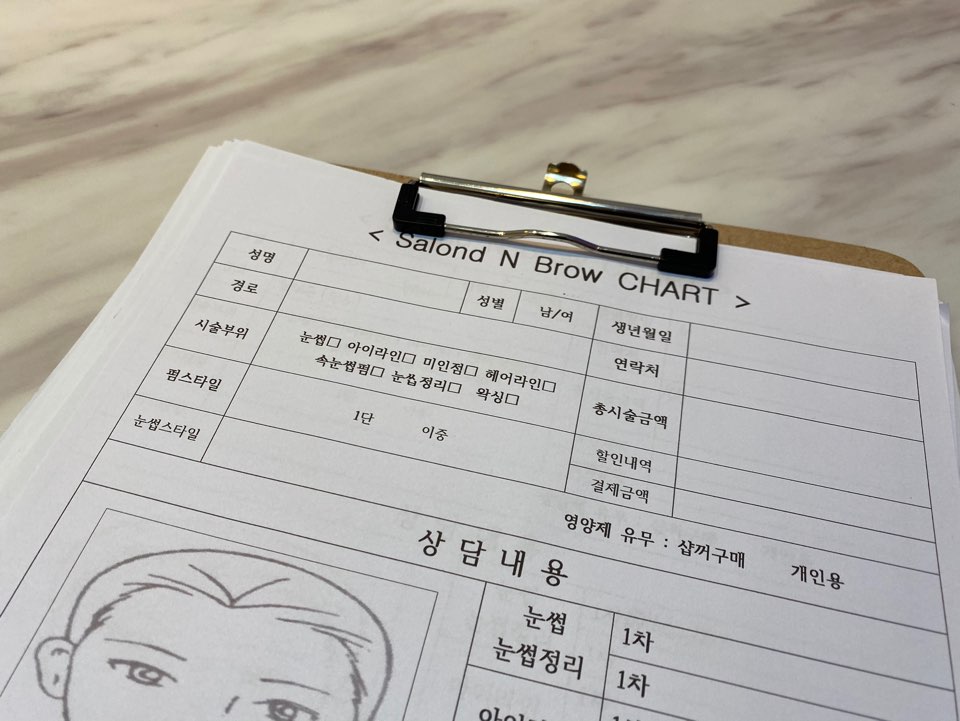 < Salond N Brow CHART >
성명
성별 남/여 생년월일
경로
연락처
시술부위
눈썹□ 아이라인□ 미인점□ 헤어라인□
속눈썹펌□ 눈썹정리□ 왁싱□
총시술금액
펌스타일
1단 이중
할인내역
눈썹스타일
결제금액
영양제 유무 : 샵꺼구매 개인용
상담내용
눈썹
눈썹정리
1차
1차